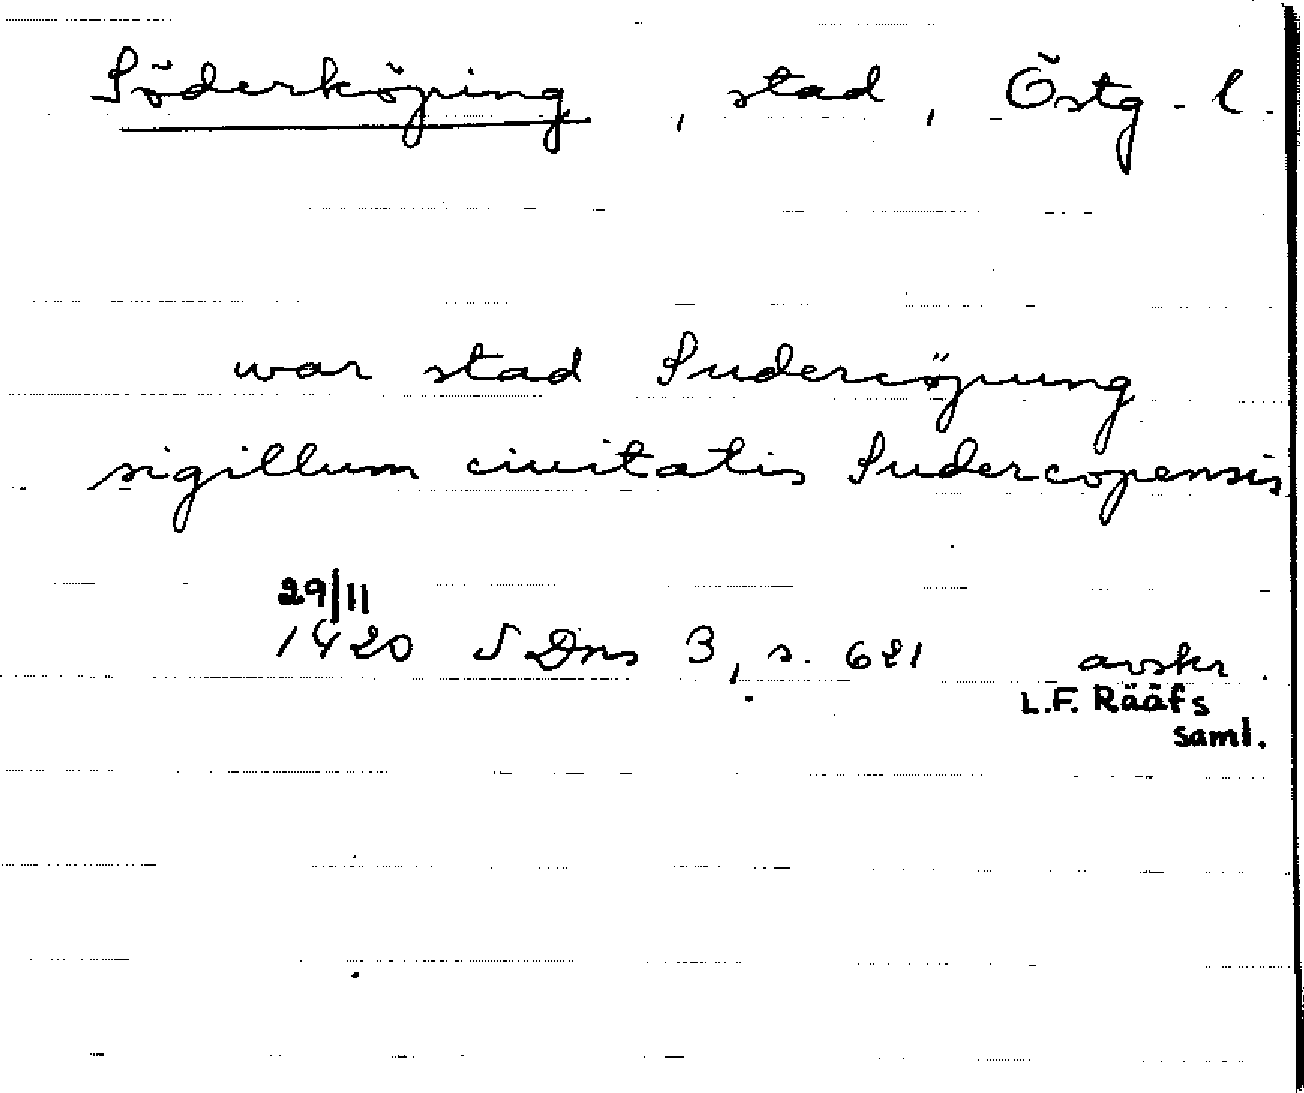 Söderköping, stad, Östg-l.
war stad Sudercöpung
sigillum ciuitatis Sudercopensis
29/11
1420 SDns 3, s. 621 avskr
L.F. Rääfs
saml.